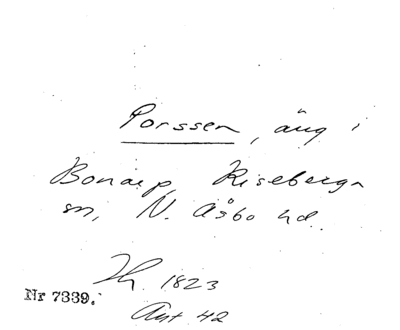 Porssen, äng i
Bonarp Riseberga
sn, N. Åsbo hd.
1823
Nr 7339.
Akt 42